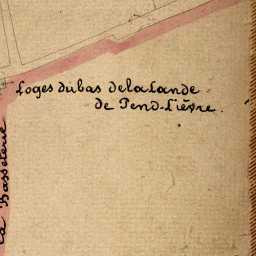 Loges du bas de la Lande
de Pend-Lièvre.
la Basseterie